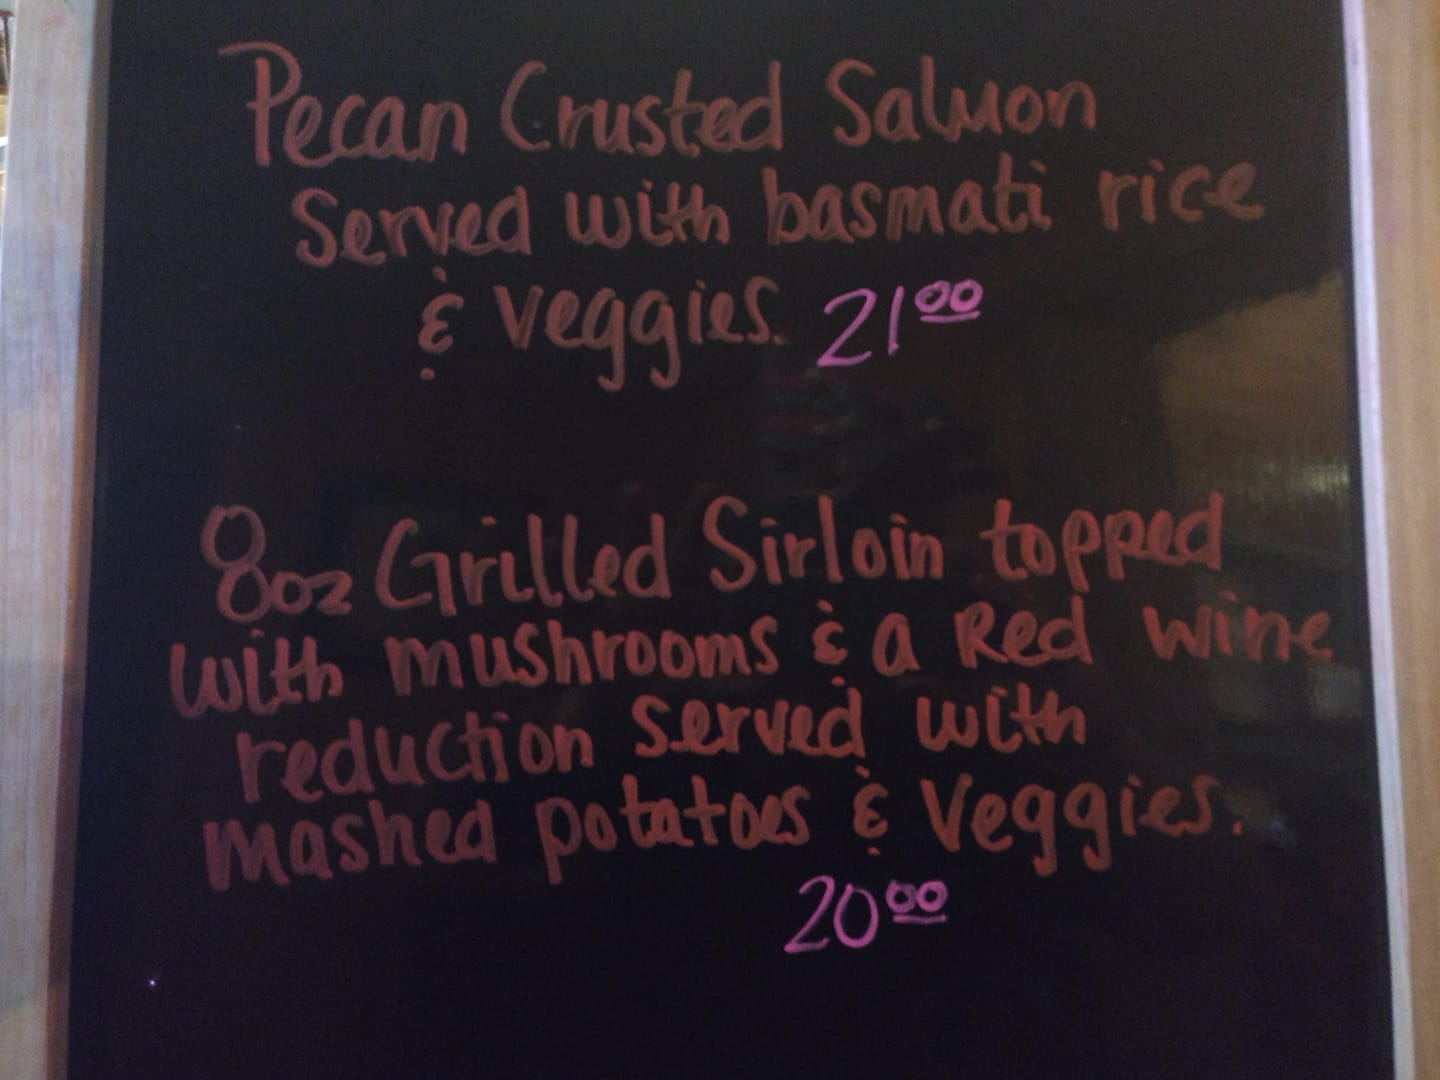 Pecan Crusted Salmon
Served with basmati rice
& veggies. 21⁰⁰
8oz Grilled Sirloin topped
with mushrooms & a Red wine
reduction served with
mashed potatoes & Veggies.
20⁰⁰